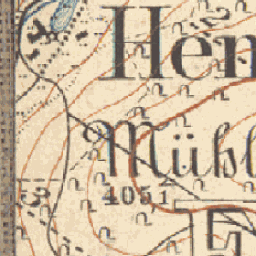 Hen
Mühl
4051